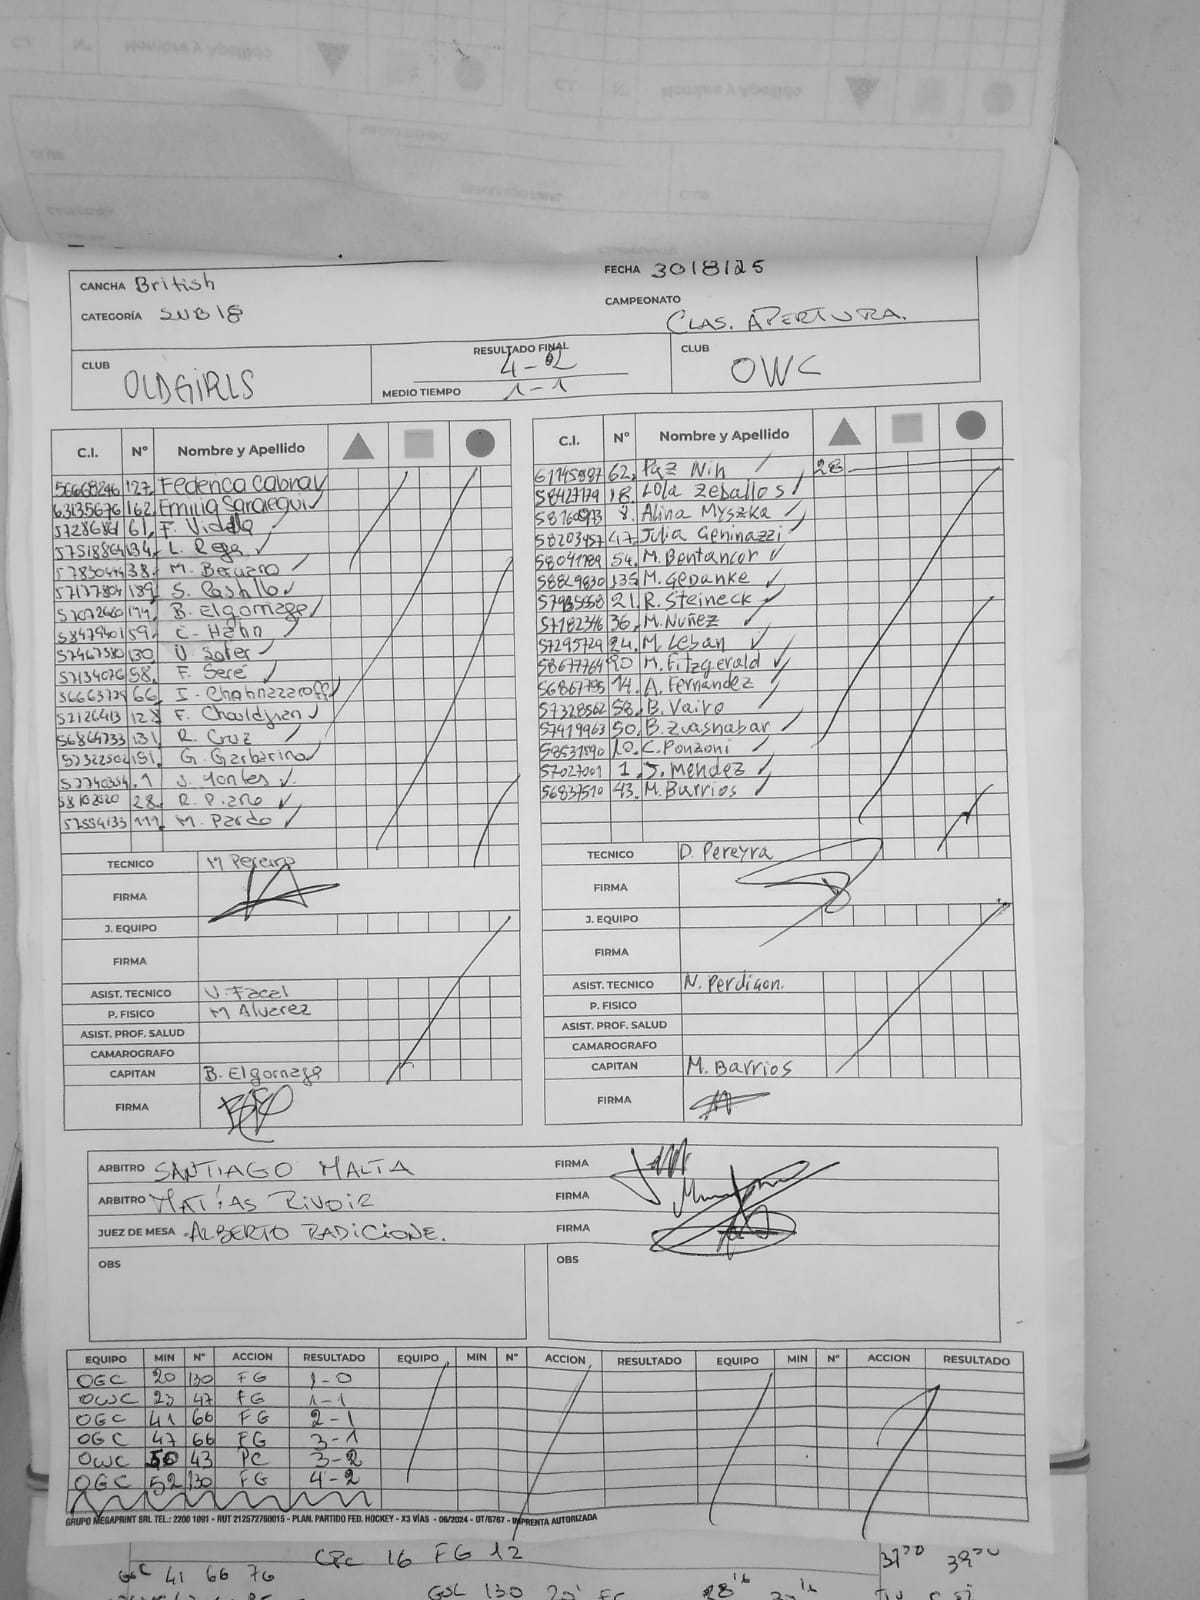 CANCHA British FECHA 30/8/25
CATEGORÍA SUB 18 CAMPEONATO CLAS. APERTURA.
CLUB OLDGIRLS RESULTADO FINAL 4-2 CLUB OWC
MEDIO TIEMPO 1-1
C.I. Nº Nombre y Apellido
127 Federica Cabral
63135676 162 Emilia Saraegui
61 F. Vidella
134 L. Rega
38. M. Beruzro
189 S. Castillo
B. Elgorriaga
59 C. Hahn
57467580 130 V. Soler
57134076 58. F. Seré
66 I. Chahnazaroff
52126413 F. Chouldjian
56864733 131 R. Cruz
57322502 151 G. Garbarino
57740354 . 1 J. Montes
28. R. Piano
57554133 111 M. Pardo
TECNICO M Pereira
FIRMA
J. EQUIPO
FIRMA
ASIST. TECNICO V. Facal
P. FISICO M Alvarez
ASIST. PROF. SALUD
CAMAROGRAFO
CAPITAN B. Elgorriaga
FIRMA
C.I. Nº Nombre y Apellido
61145987 62. Paz Nin 28
58427179 18. Lola Zeballos
8. Alina Myszka
58203457 47. Julia Geninazzi
58041789 54. M. Bentancor
58829830 135 M. Gedanke
21. R. Steineck
57182346 36. M. Nuñez
57295729 24. M. Leban
58677764 90 M. Fitzgerald
56867795 14. A. Fernandez
57328562 58. B. Vairo
57419963 50. B. Zuasnabar
58531590 10. C. Ponzoni
57027001 1. J. Mendez
56837510 43. M. Barrios
TECNICO D. Pereyra
FIRMA
J. EQUIPO
FIRMA
ASIST. TECNICO N. Perdigon.
P. FISICO
ASIST. PROF. SALUD
CAMAROGRAFO
CAPITAN M. Barrios
FIRMA
ARBITRO SANTIAGO MALTA FIRMA
ARBITRO MATÍAS RIVOIR FIRMA
JUEZ DE MESA ALBERTO RADICIONE. FIRMA
OBS OBS
EQUIPO MIN Nº ACCION RESULTADO EQUIPO MIN Nº ACCION RESULTADO EQUIPO MIN Nº ACCION RESULTADO
OGC 20 130 FG 1-0
OWC 23 47 FG 1-1
OGC 41 66 FG 2-1
OGC 47 66 FG 3-1
OWC 50 43 PC 3-2
OGC 52 130 FG 4-2
GRUPO MEGAPRINT SRL TEL.: 2200 1091 - RUT 212572760015 - PLAN. PARTIDO FED. HOCKEY - X3 VÍAS - 06/2024 - OT/6767 - IMPRENTA AUTORIZADA
16 FG 12
41 66 76
130 20'